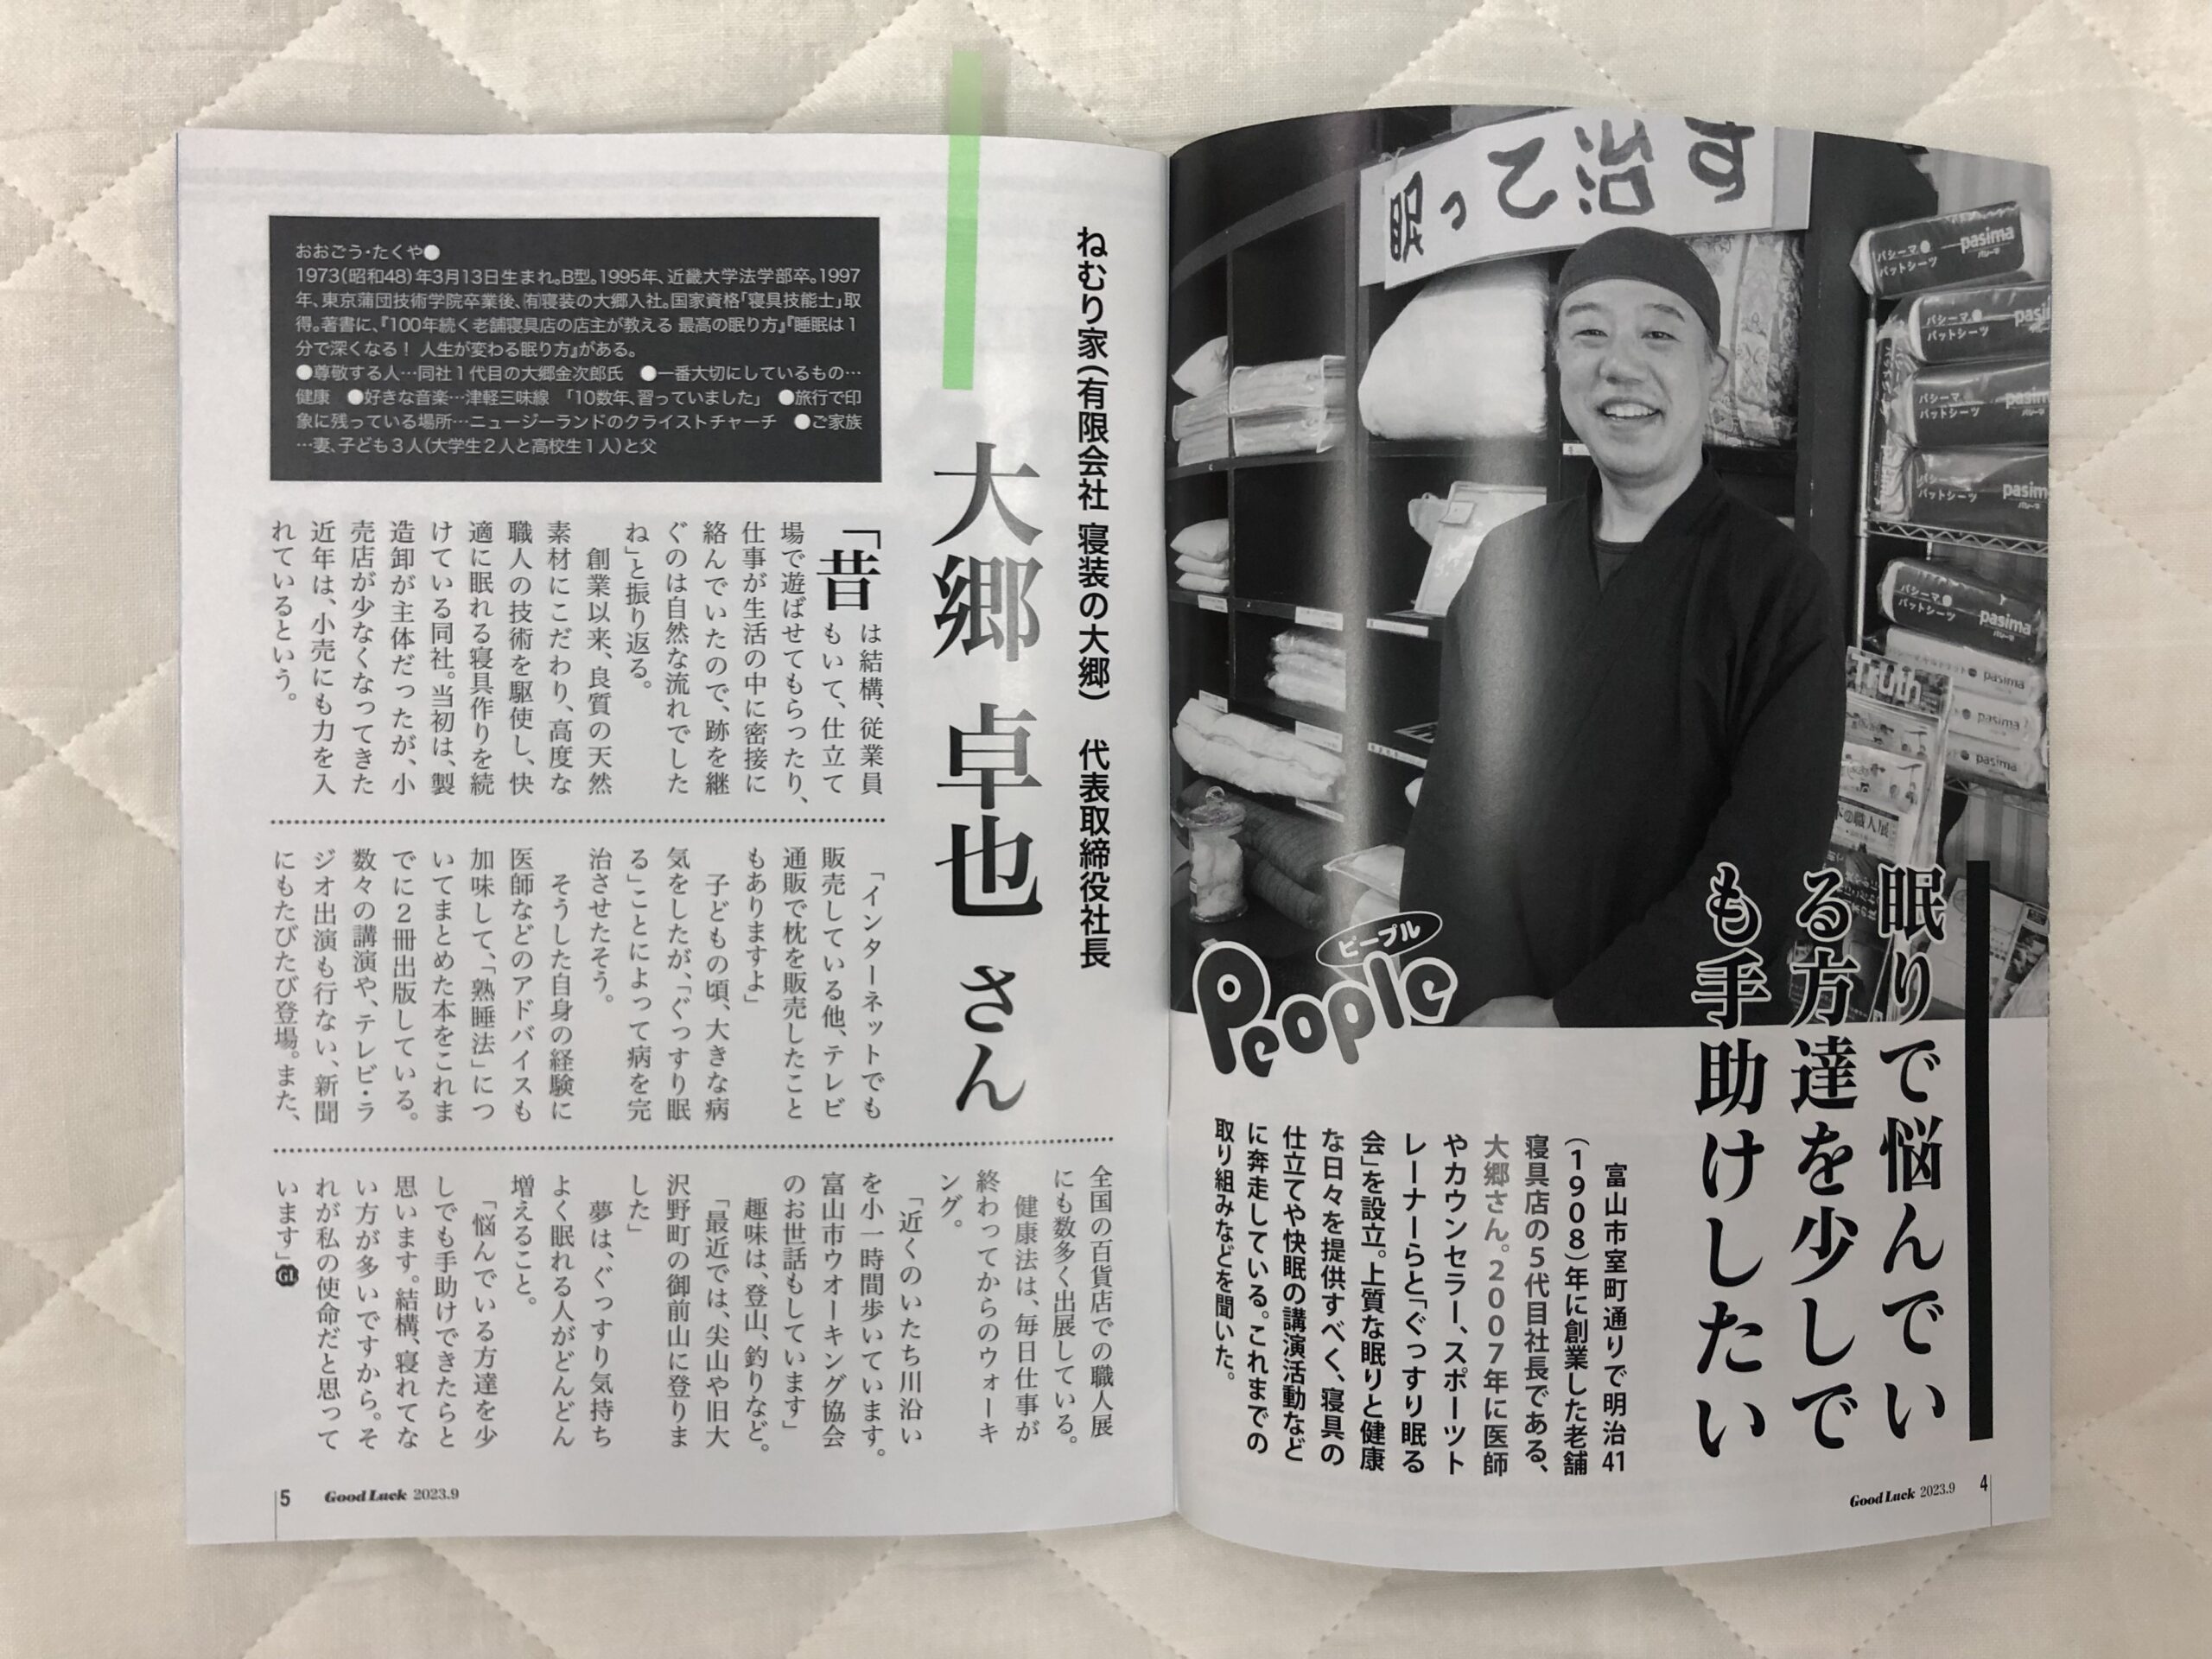 眠って治す
パシーマ
パットシーツ
pasima
パシーマ
パシーマ
パットシーツ
パシーマ
パットシーツ
パシーマ
パットシーツ
pasima
パシーマ
パットシーツ
pasima
パシーマ
pasima
pasima
pasima
Truth
眠りで悩んでい
る方達を少しで
も手助けしたい
ピープル
People
富山市室町通りで明治41
（1908）年に創業した老舗
寝具店の5代目社長である、
大郷さん。2007年に医師
やカウンセラー、スポーツト
レーナーらと「ぐっすり眠る
会」を設立。上質な眠りと健康
な日々を提供すべく、寝具の
仕立てや快眠の講演活動など
に奔走している。これまでの
取り組みなどを聞いた。
Good Luck 2023.9 4
ねむり家（有限会社 寝装の大郷） 代表取締役社長
大郷 卓也 さん
おおごう・たくや●
1973（昭和48）年3月13日生まれ。B型。1995年、近畿大学法学部卒。1997
年、東京蒲団技術学院卒業後、㈲寝装の大郷入社。国家資格「寝具技能士」取
得。著書に、『100年続く老舗寝具店の店主が教える 最高の眠り方』『睡眠は1
分で深くなる！ 人生が変わる眠り方』がある。
●尊敬する人…同社1代目の大郷金次郎氏 ●一番大切にしているもの…
健康 ●好きな音楽…津軽三味線 「10数年、習っていました」 ●旅行で印
象に残っている場所…ニュージーランドのクライストチャーチ ●ご家族
…妻、子ども3人（大学生2人と高校生1人）と父
「昔は結構、従業員
もいて、仕立て
場で遊ばせてもらったり、
仕事が生活の中に密接に
絡んでいたので、跡を継
ぐのは自然な流れでした
ね」と振り返る。
創業以来、良質の天然
素材にこだわり、高度な
職人の技術を駆使し、快
適に眠れる寝具作りを続
けている同社。当初は、製
造卸が主体だったが、小
売店が少なくなってきた
近年は、小売にも力を入
れているという。
「インターネットでも
販売している他、テレビ
通販で枕を販売したこと
もありますよ」
子どもの頃、大きな病
気をしたが、「ぐっすり眠
る」ことによって病を完
治させたそう。
そうした自身の経験に
医師などのアドバイスも
加味して、「熟睡法」につ
いてまとめた本をこれま
でに2冊出版している。
数々の講演や、テレビ・ラ
ジオ出演も行ない、新聞
にもたびたび登場。また、
全国の百貨店での職人展
にも数多く出展している。
健康法は、毎日仕事が
終わってからのウォーキ
ング。
「近くのいたち川沿い
を小一時間歩いています。
富山市ウオーキング協会
のお世話もしています」
趣味は、登山、釣りなど。
「最近では、尖山や旧大
沢野町の御前山に登りま
した」
夢は、ぐっすり気持ち
よく眠れる人がどんどん
増えること。
「悩んでいる方達を少
しでも手助けできたらと
思います。結構、寝れてな
い方が多いですから。そ
れが私の使命だと思って
います」GL
5 Good Luck 2023.9